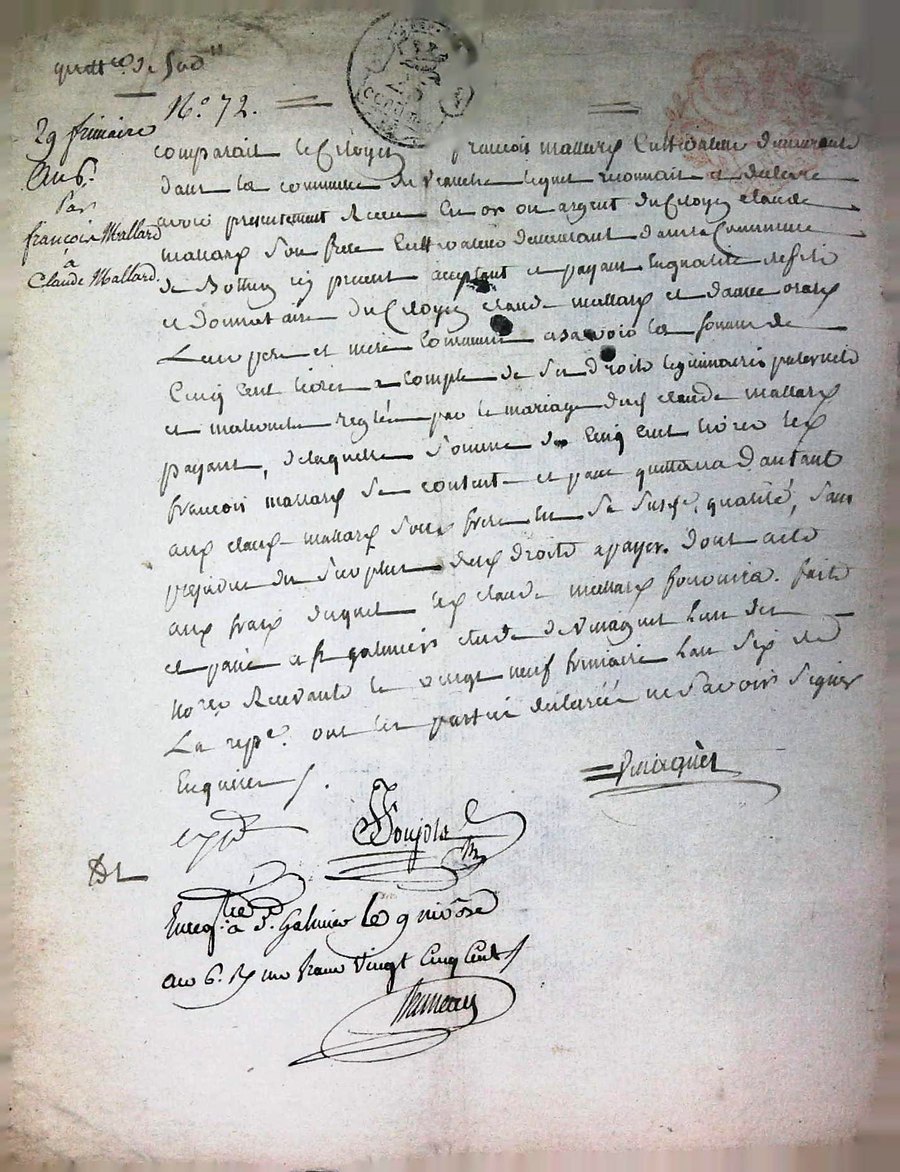 quitt.ce de 500 ll
N.o 72.
29 frimaire
An 6.
Par
françois Mallard
à
Claude Mallard
comparait le Citoyen francois mallard Cultivateur demeurant
dans la commune de lequel reconnait et déclare
avoir presentement Receu en or ou argent du Citoyen claude
mallard Son frere Cultivateur demeurant dans la Commune
de ici present acceptant et payant en qualité
et donnataire du Citoyen claude mallard et
Leur pere et mere Communs asavoir la somme de
Cinq cent livres a compte de Ses droits legitimaires paternels
et maternels reglés par le mariage dud claude mallard
payant, de laquelle Somme de Cinq cent livres led
francois mallard Se contente et passe quittance d'autant
aud claude mallard Son frere en Sa Susd.e qualité, Sans
prejudice du Surplus desd droits a payer. dont acte
aux frais duquel led claude mallard fournira. fait
et passé a St galmier etude de Vinagnet L'un des
no.res Recevants le vingt neuf frimaire L'an Six de
La rep.e ont les parties declarées ne Savoir Signer
Enquises
Vinagnet
exp.d
Enreg.tré à St. Galmier le 9 nivose
an 6. R un franc Vingt Cinq Cent